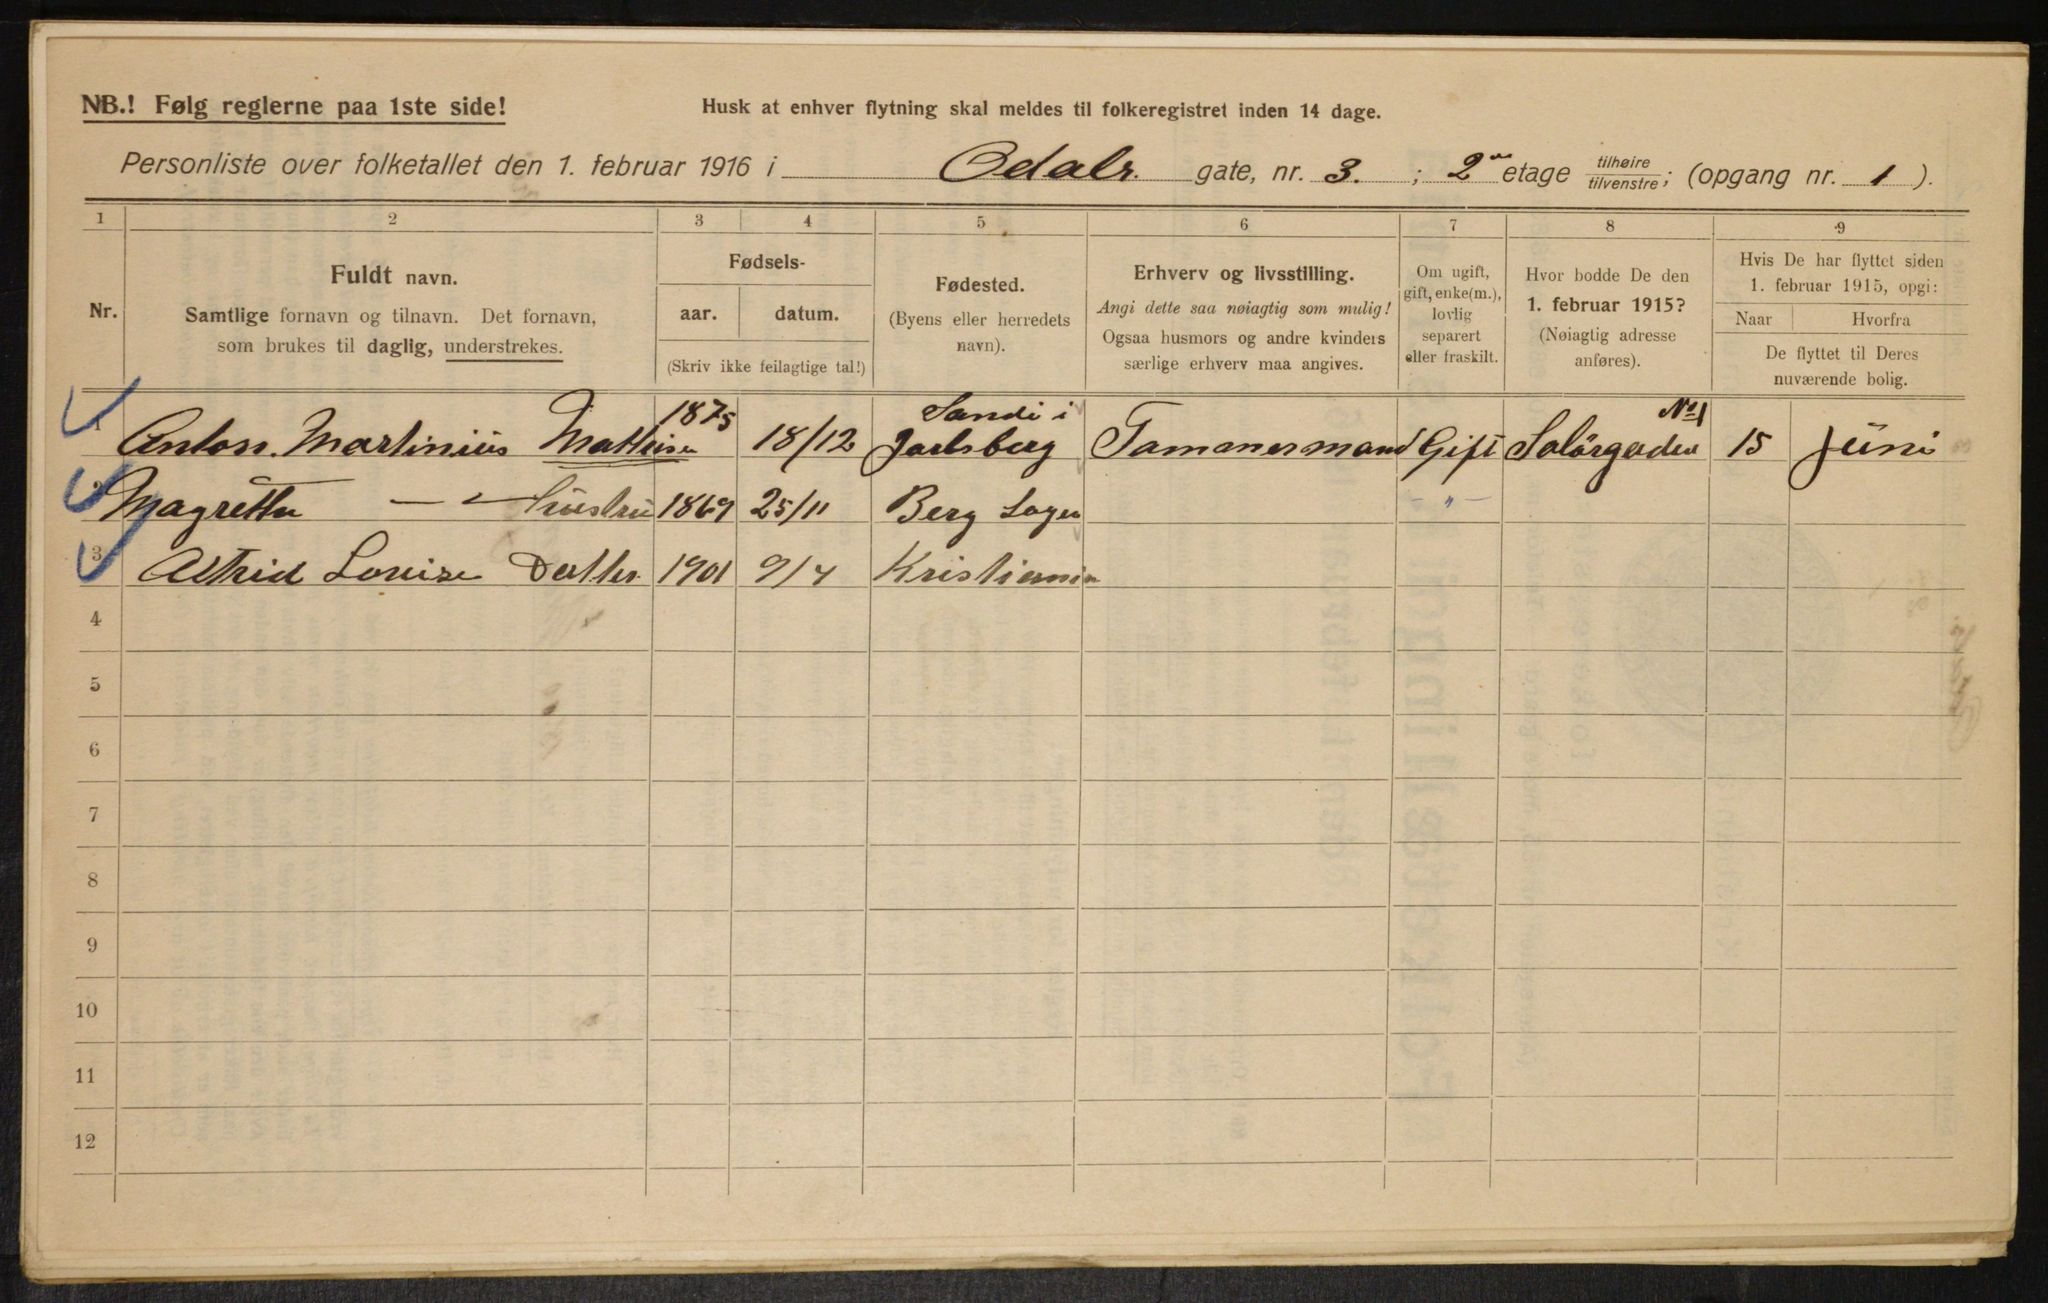 NB.! Følg reglerne paa 1ste side!
Husk at enhver flytning skal meldes til folkeregistret inden 14 dage.
Personliste over folketallet den 1. februar 1916 i Odals. gate, nr. 3. ; 2 etage tilhøire/tilvenstre; (opgang nr. 1 ).
1 2 3 4 5 6 7 8 9
Nr.
Fuldt navn.
Samtlige fornavn og tilnavn. Det fornavn,
som brukes til daglig, understrekes.
Fødsels-
aar. datum.
(Skriv ikke feilagtige tal!)
Fødested.
(Byens eller herredets
navn).
Erhverv og livsstilling.
Angi dette saa nøiagtig som mulig!
Ogsaa husmors og andre kvinders
særlige erhverv maa angives.
Om ugift,
gift, enke(m.),
lovlig
separert
eller fraskilt.
Hvor bodde De den
1. februar 1915?
(Nøiagtig adresse
anføres).
Hvis De har flyttet siden
1. februar 1915, opgi:
Naar Hvorfra
De flyttet til Deres
nuværende bolig.
1 Anton. Martinius Mathisen 1875 18/12 Sandi i Jarlsberg Tømmermand Gift Solørgaden No 1 15 Juni
2 Magrethe — " — Hustru 1869 25/11 Berg - " -
3 Astrid Lovise Datter 1901 9/4 Kristiania
4
5
6
7
8
9
10
11
12